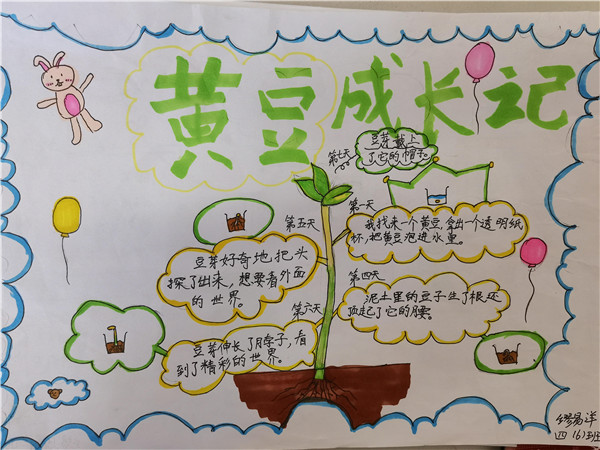 黄豆成长记
第七天
豆芽戴上
了它的帽子。
第一天
我找来一个黄豆,拿出一个透明纸
杯,把黄豆泡进水里。
第五天
豆芽好奇地把头
探了出来,想要看外面
的世界。
第四天
泥土里的豆子生了根,还
顶起了它的腰。
第六天
豆芽伸长了脖子,看
到了精彩的世界。
缪易洋
四(6)班